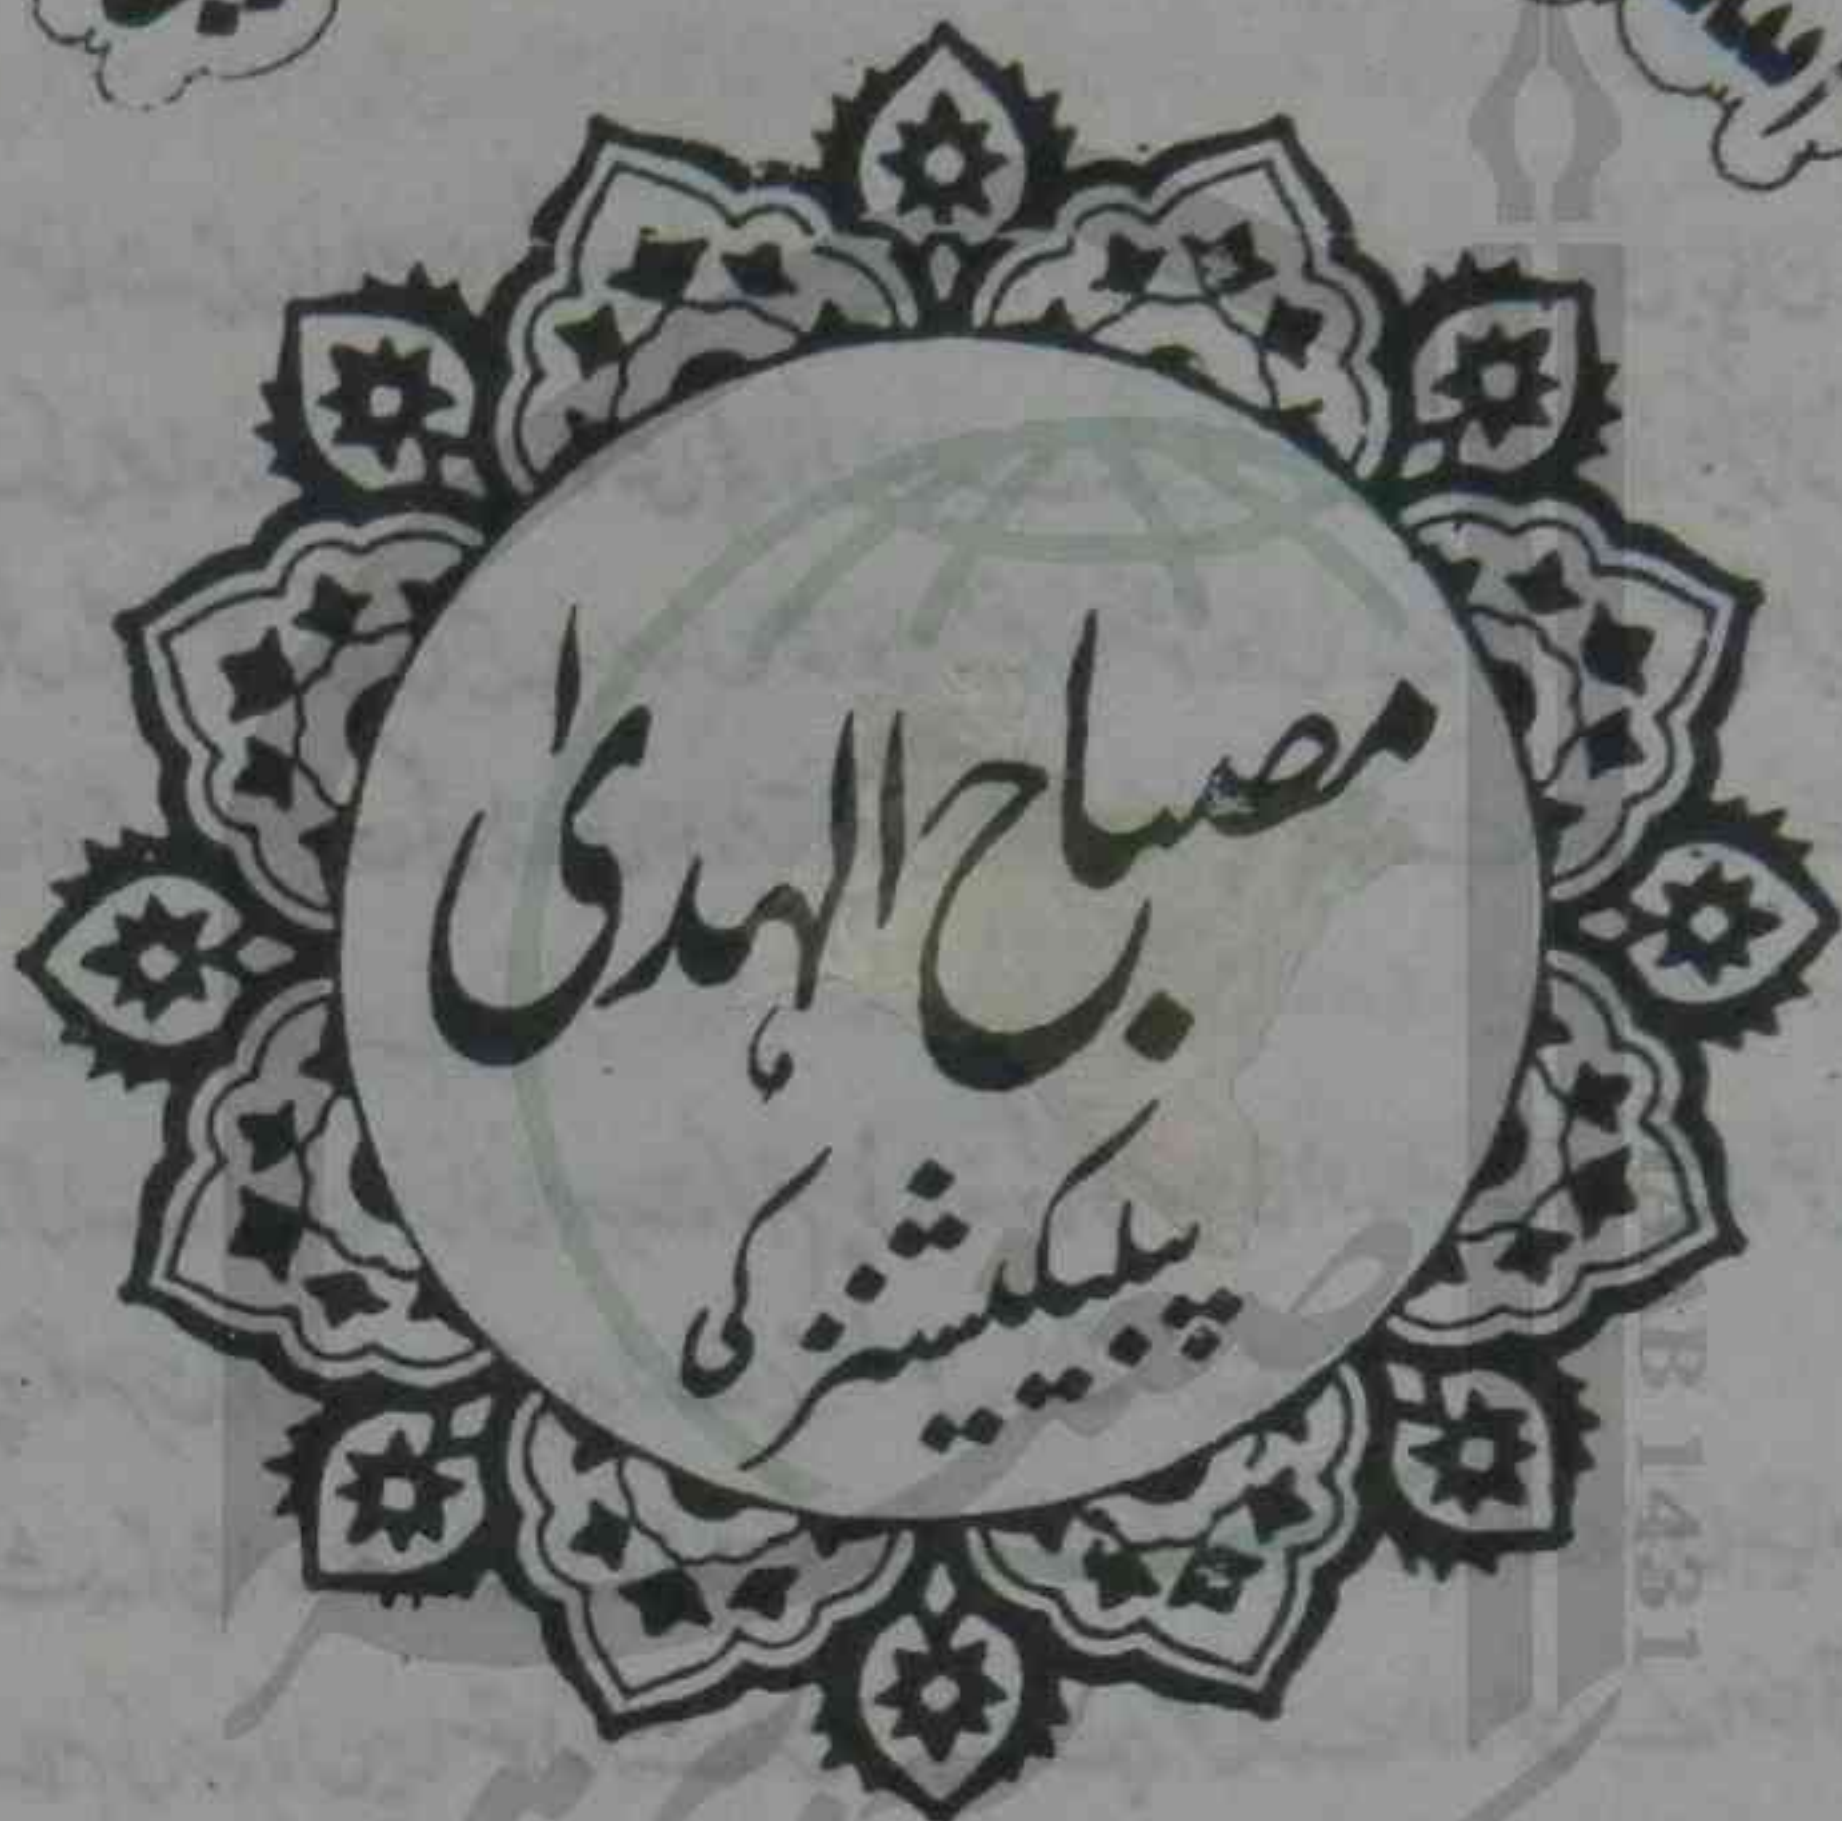 مصباح الہدیٰ
پبلیکیشنز کی
B 1431